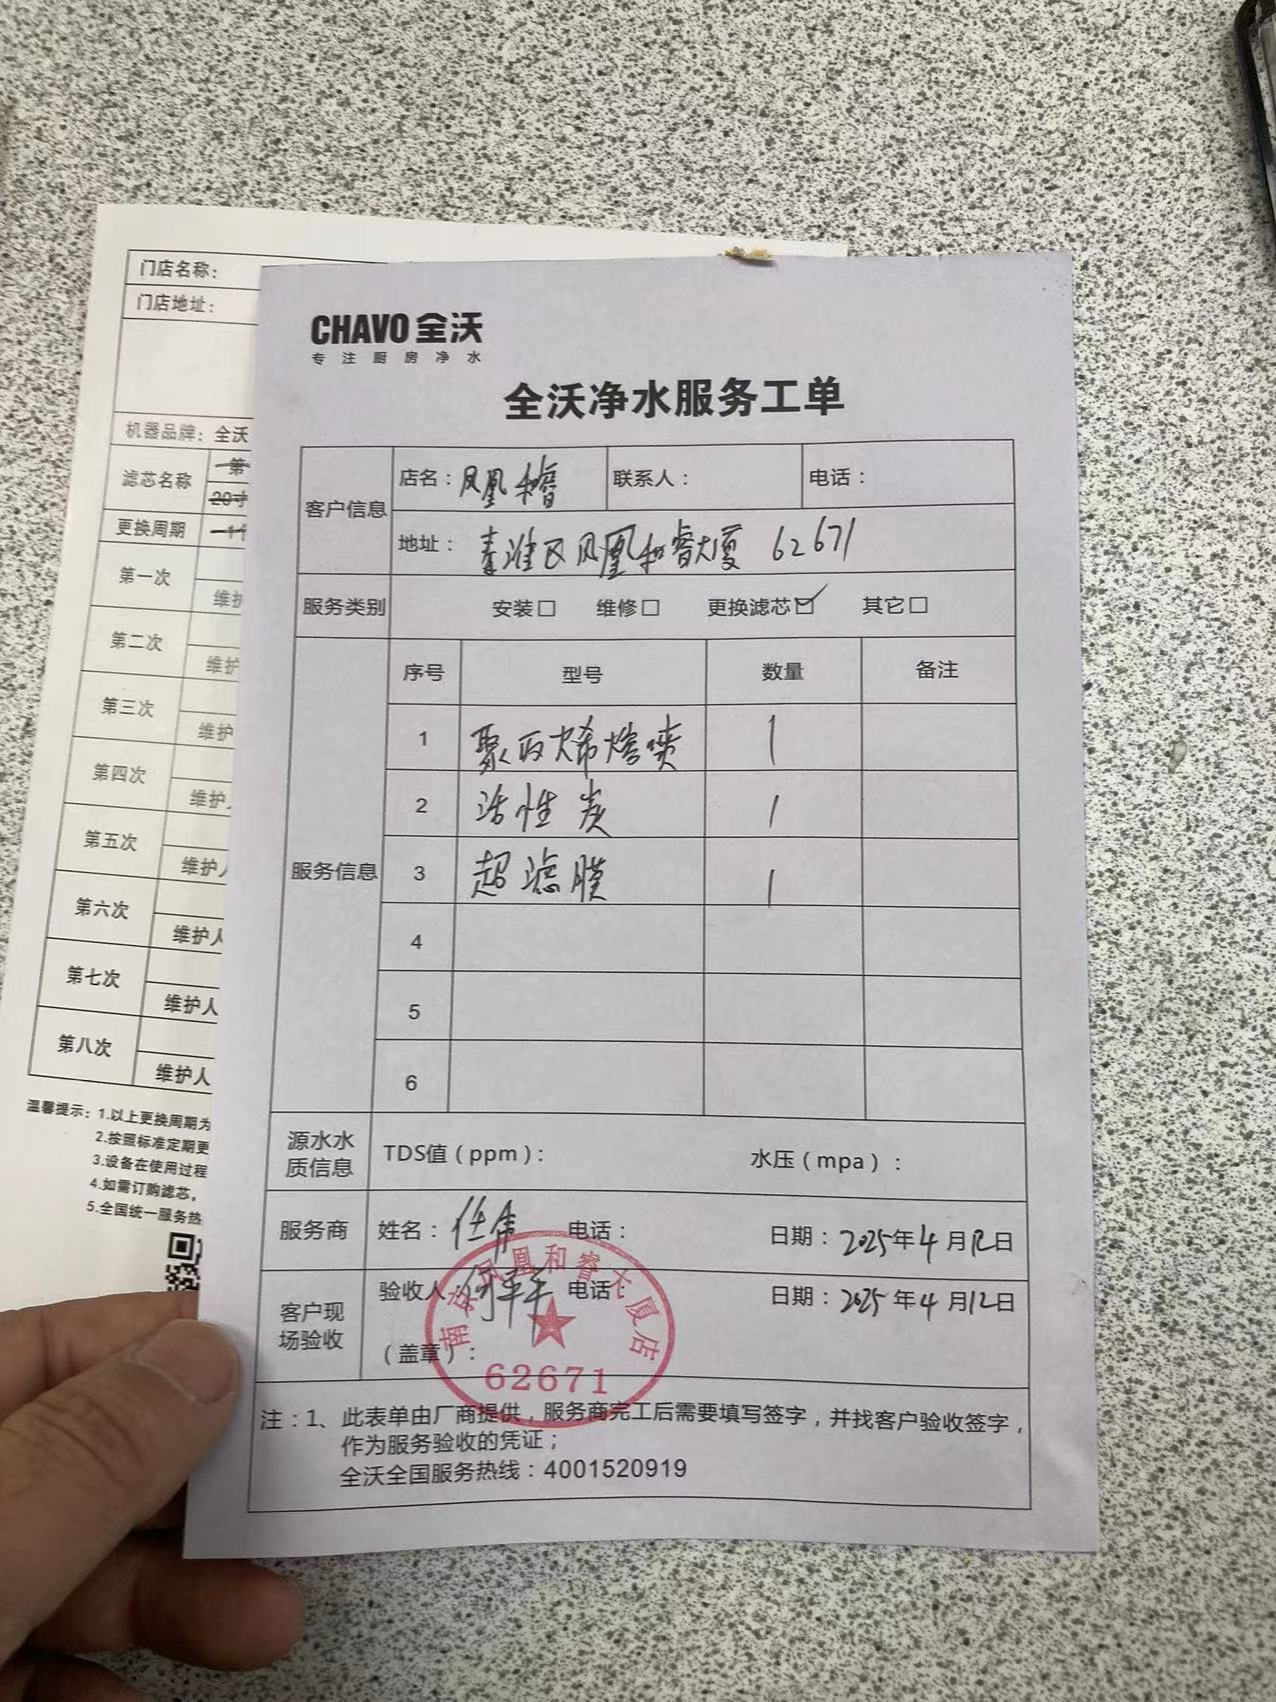 门店名称：
门店地址：
机器品牌：全沃
滤芯名称
第一
20寸
更换周期
第一次
维护
第二次
维护
第三次
维护
第四次
维护
第五次
维护
第六次
维护人
第七次
维护人
第八次
维护人
温馨提示：1.以上更换周期为
2.按照标准定期更
3.设备在使用过程
4.如需订购滤芯，
5.全国统一服务热
CHAVO 全沃
专注厨房净水
全沃净水服务工单
客户信息
店名：凤凰和睿
联系人：
电话：
地址：秦淮区凤凰和睿大厦 62671
服务类别
安装□ 维修□ 更换滤芯☑ 其它□
服务信息
序号 型号 数量 备注
1 聚丙烯熔喷 1
2 活性炭 1
3 超滤膜 1
4
5
6
源水水质信息
TDS值（ppm）： 水压（mpa）：
服务商
姓名：任 电话： 日期：2025年4月12日
客户现场验收
验收人：何平平 电话： 日期：2025年4月12日
（盖章）：
南京凤凰和睿大厦店
62671
注：1、此表单由厂商提供，服务商完工后需要填写签字，并找客户验收签字，
作为服务验收的凭证；
全沃全国服务热线：4001520919